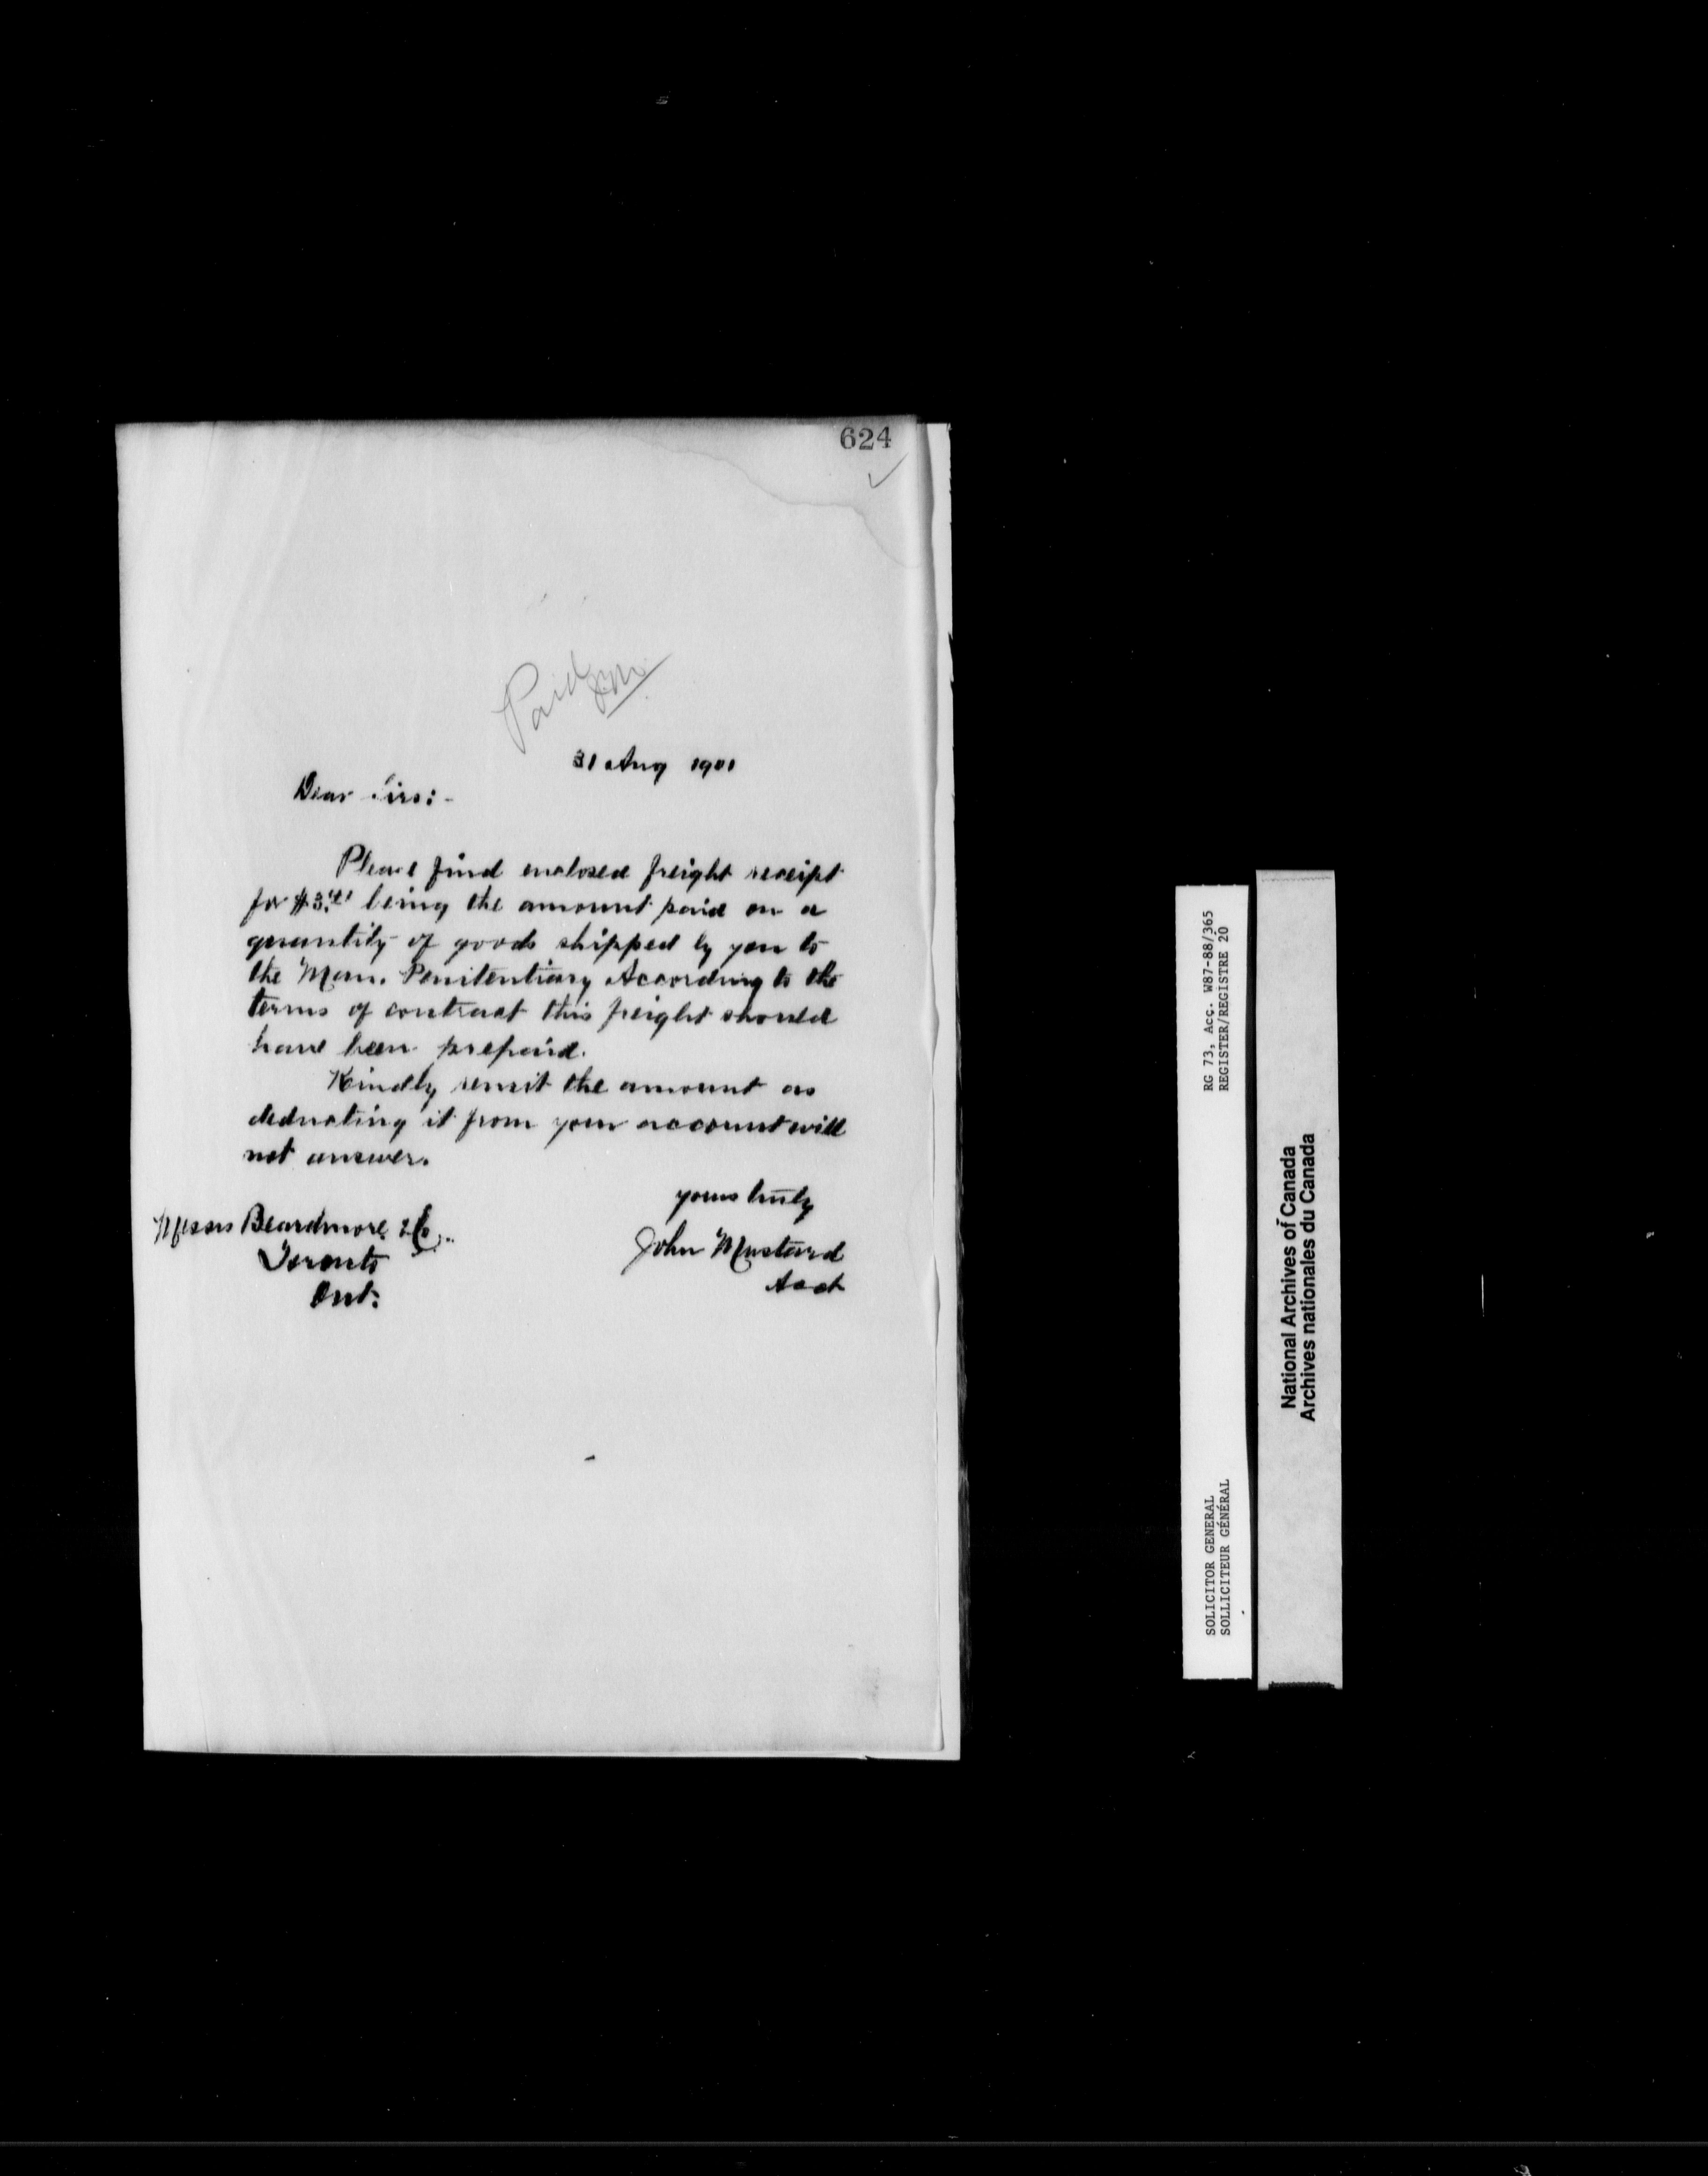 624
Paid J.M.
31 Aug 1901
Dear Sirs:-
Please find enclosed freight receipt
for being the amount paid on a
quantity of goods shipped by you to
the Man. Penitentiary According to the
terms of contract this freight should
have been prepaid.
Kindly remit the amount as
deducting it from your account will
not answer.
yours truly
Messrs Beardmore & Co.
John Mustard
Toronto
Acct
Ont.
RG 73, Acc. W87-88/365
REGISTER/REGISTRE 20
SOLICITOR GENERAL
SOLLICITEUR GÉNÉRAL
National Archives of Canada
Archives nationales du Canada